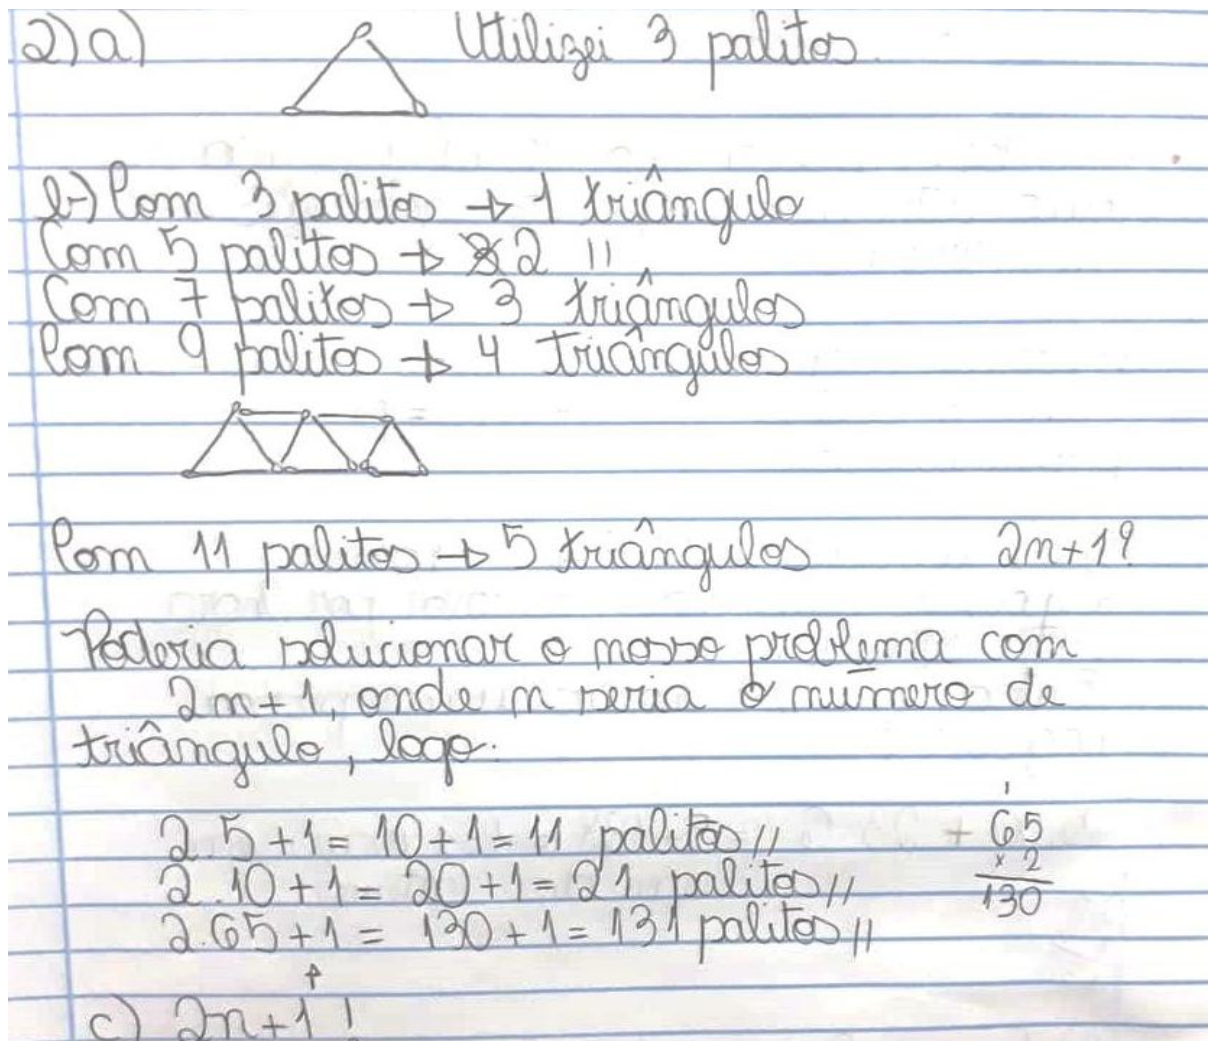 2) a) Utilizei 3 palitos.
b) Com 3 palitos → 1 triângulo
Com 5 palitos → 2 11
Com 7 palitos → 3 triângulos
Com 9 palitos → 4 triângulos
Com 11 palitos → 5 triângulos 2n+1?
Poderia solucionar o nosso problema com
2n+1, onde n seria o número de
triângulo, logo:
2.5+1= 10+1= 11 palitos//
2.10+1= 20+1= 21 palitos//
2.65+1= 130+1= 131 palitos//
1
+ 65
x 2
130
c) 2n+1!